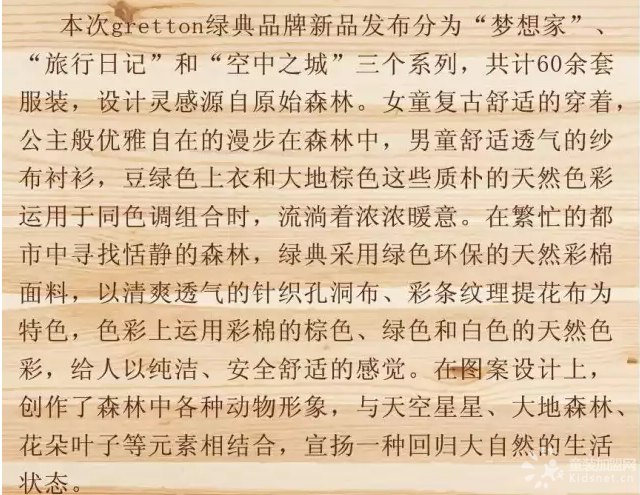 本次gretton绿典品牌新品发布分为“梦想家”、
“旅行日记”和“空中之城”三个系列，共计60余套
服装，设计灵感源自原始森林。女童复古舒适的穿着，
公主般优雅自在的漫步在森林中，男童舒适透气的纱
布衬衫，豆绿色上衣和大地棕色这些质朴的天然色彩
运用于同色调组合时，流淌着浓浓暖意。在繁忙的都
市中寻找恬静的森林，绿典采用绿色环保的天然彩棉
面料，以清爽透气的针织孔洞布、彩条纹理提花布为
特色，色彩上运用彩棉的棕色、绿色和白色的天然色
彩，给人以纯洁、安全舒适的感觉。在图案设计上，
创作了森林中各种动物形象，与天空星星、大地森林、
花朵叶子等元素相结合，宣扬一种回归大自然的生活
状态。
童装加盟网
Kidsnet.cn